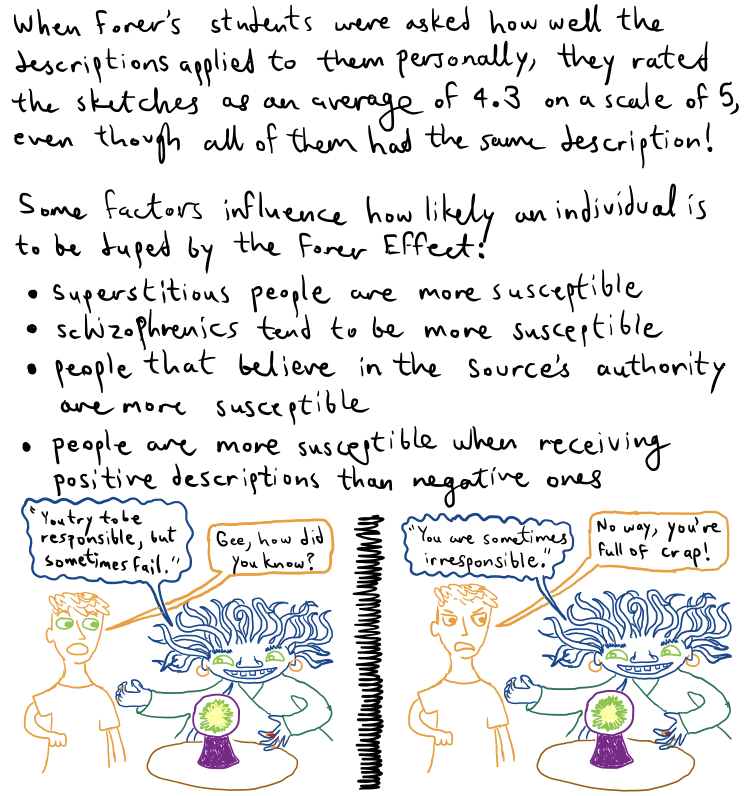 When Forer's students were asked how well the
descriptions applied to them personally, they rated
the sketches as an average of 4.3 on a scale of 5,
even though all of them had the same description!
Some factors influence how likely an individual is
to be duped by the Forer Effect:
• superstitious people are more susceptible
• schizophrenics tend to be more susceptible
• people that believe in the source's authority
are more susceptible
• people are more susceptible when receiving
positive descriptions than negative ones
"You try to be
responsible, but
sometimes fail."
Gee, how did
you know?
"You are sometimes
irresponsible."
No way, you're
full of crap!